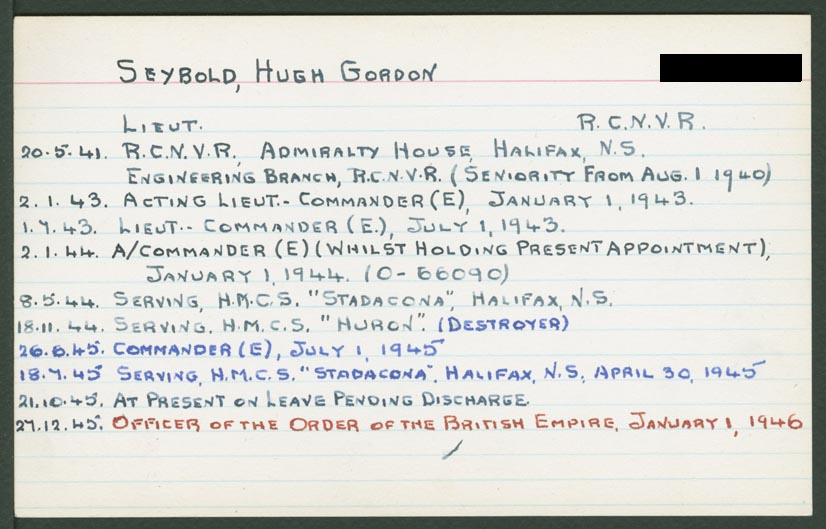 SEYBOLD, HUGH GORDON
LIEUT. R.C.N.V.R.
20.5.41. R.C.N.V.R., ADMIRALTY HOUSE, HALIFAX, N.S.
ENGINEERING BRANCH, R.C.N.V.R. (SENIORITY FROM AUG. 1 1940)
2.1.43. ACTING LIEUT.- COMMANDER (E), JANUARY 1, 1943.
1.7.43. LIEUT.- COMMANDER (E.), JULY 1, 1943.
2.1.44. A/COMMANDER (E) (WHILST HOLDING PRESENT APPOINTMENT),
JANUARY 1, 1944. (O-66090)
8.5.44. SERVING, H.M.C.S. "STADACONA", HALIFAX, N.S.
18.11.44. SERVING, H.M.C.S. "HURON". (DESTROYER)
26.6.45. COMMANDER (E), JULY 1, 1945
18.7.45 SERVING, H.M.C.S. "STADACONA", HALIFAX, N.S., APRIL 30, 1945
21.10.45. AT PRESENT ON LEAVE PENDING DISCHARGE.
27.12.45. OFFICER OF THE ORDER OF THE BRITISH EMPIRE, JANUARY 1, 1946